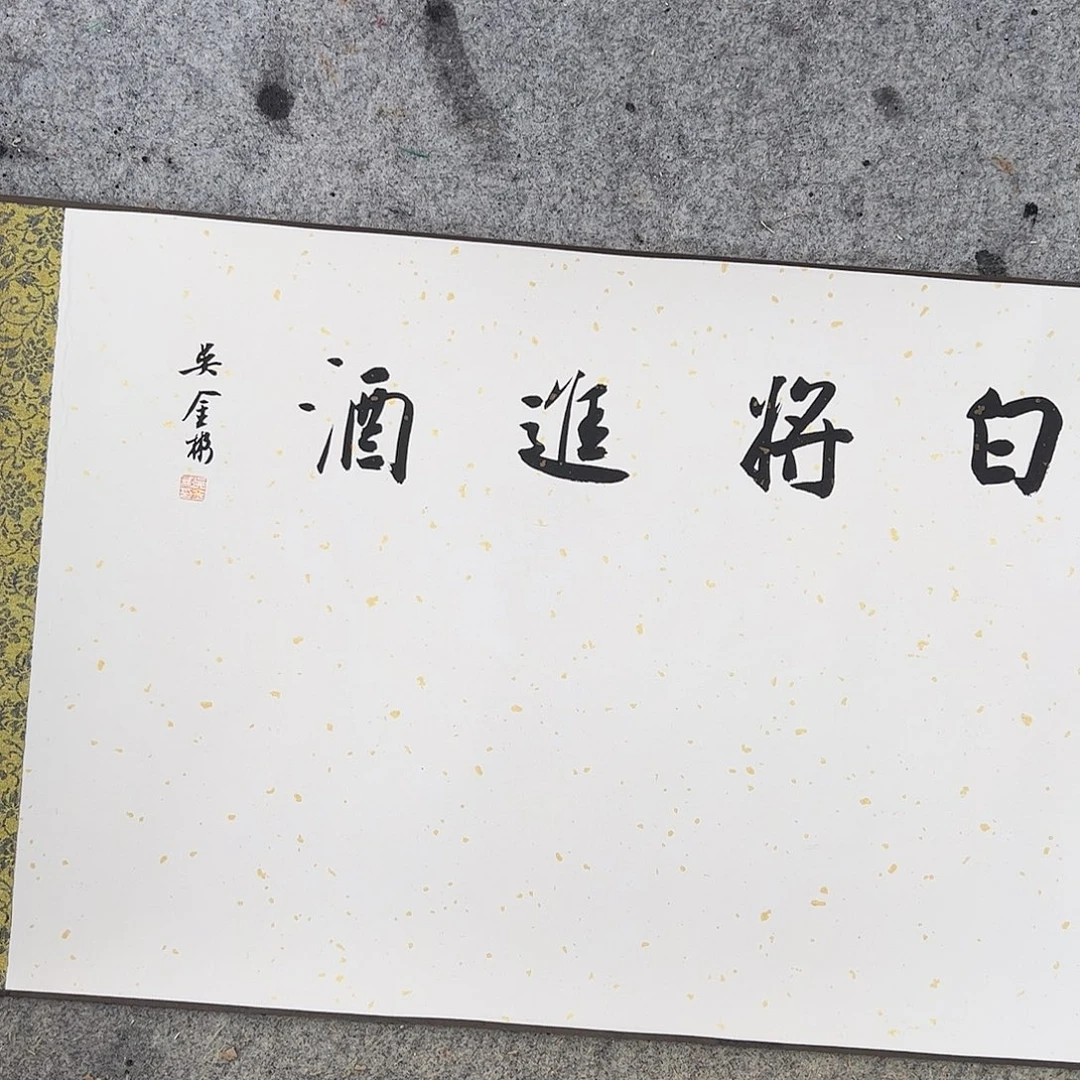 白將進酒
吳金彬